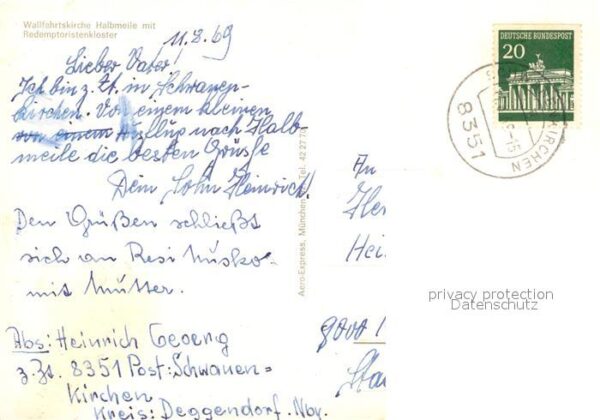 Wallfahrtskirche Halbmeile mit
Redemptoristenkloster
11.8.69
Lieber Vater,
Ich bin z. Zt. in Schwanen-
kirchen. Von einem kleinen
von einem Ausflug nach Halb
meile die besten Grüsse
Dein Sohn Heinrich.
Den Grüßen schließt
sich an Resi
mit Mutter.
Abs: Heinrich Georg
z. Zt. 8351 Post: Schwanen=
Kirchen
Kreis: Deggendorf. Nby.
Aero-Express, München Tel. 42 27 71
DEUTSCHE BUNDESPOST
20
8351
KIRCHEN
An
Her
Hei
8000
privacy protection
Datenschutz